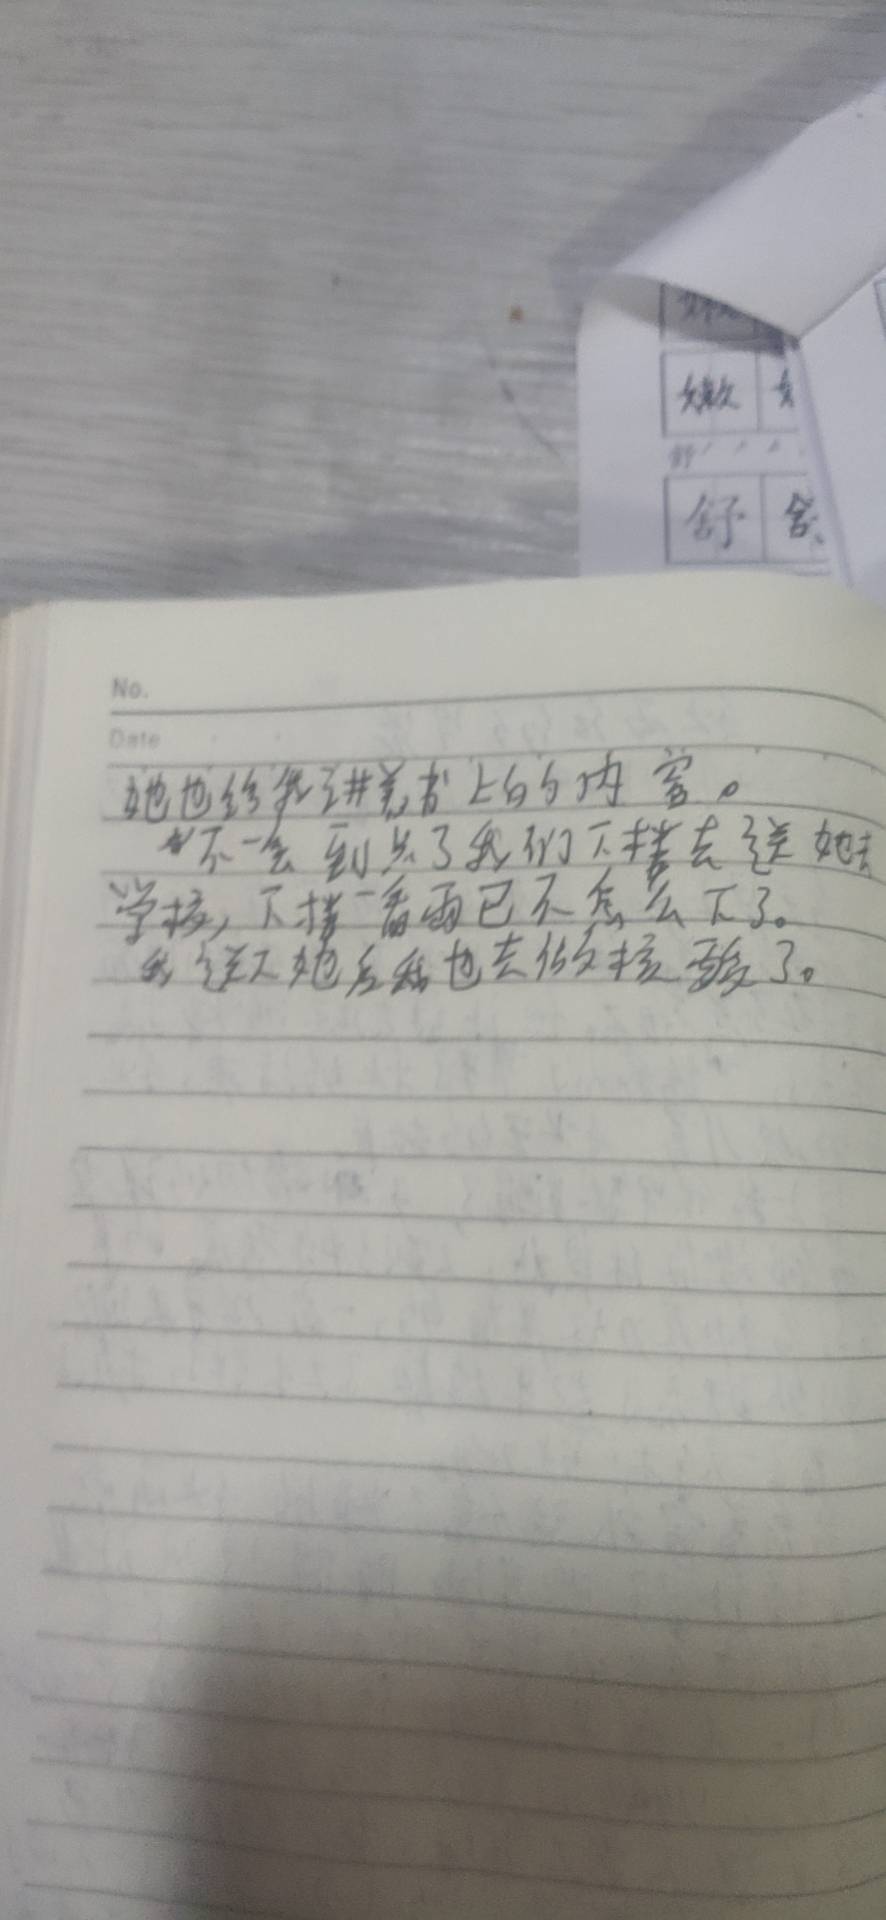 嫩
舒
No.
Date
她也给我讲着书上的内容。
不一会到点了我们下楼去送她去
学校，下楼一看雨已不怎么下了。
我送下她后我也去做核酸了。